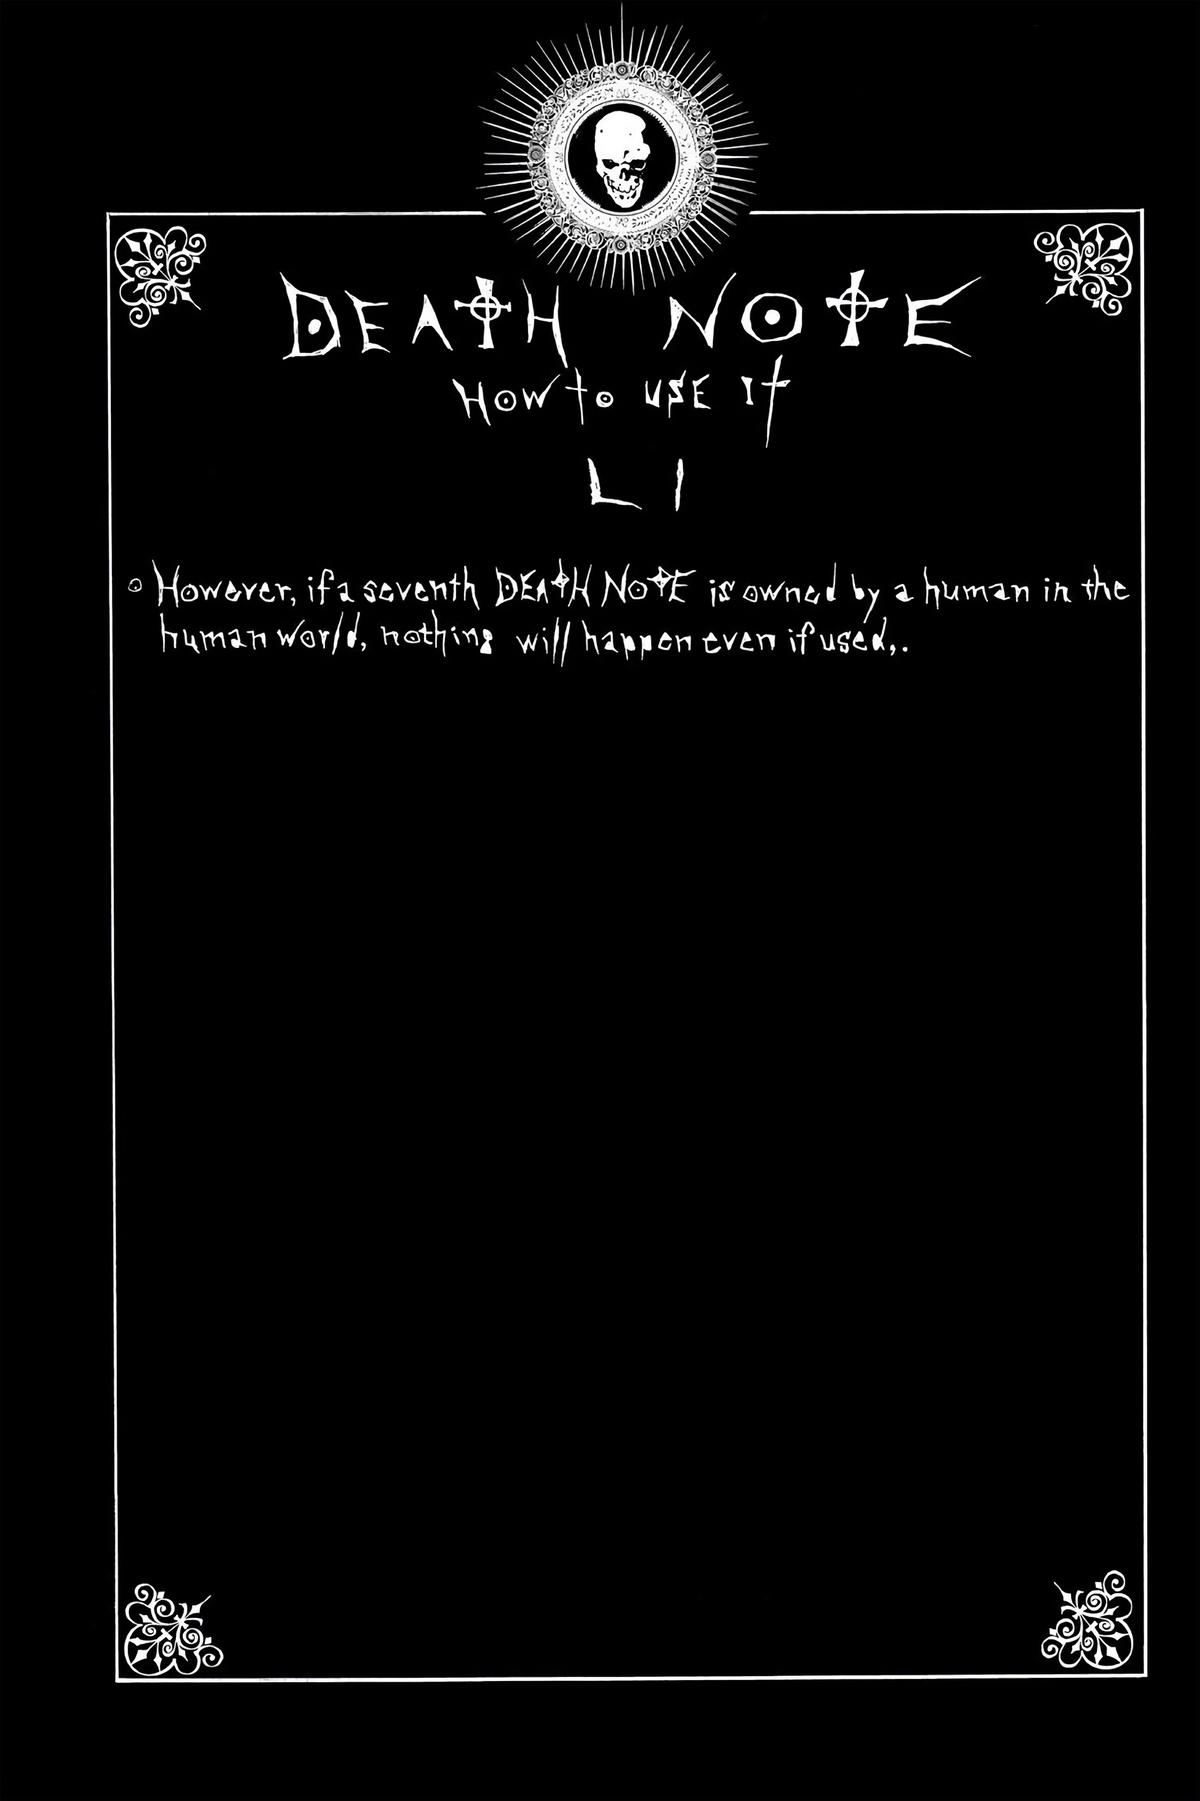 DEATH NOTE
HOW to USE It
LI
However, if a seventh DEATH NOTE is owned by a human in the
human world, nothing will happen even if used,.